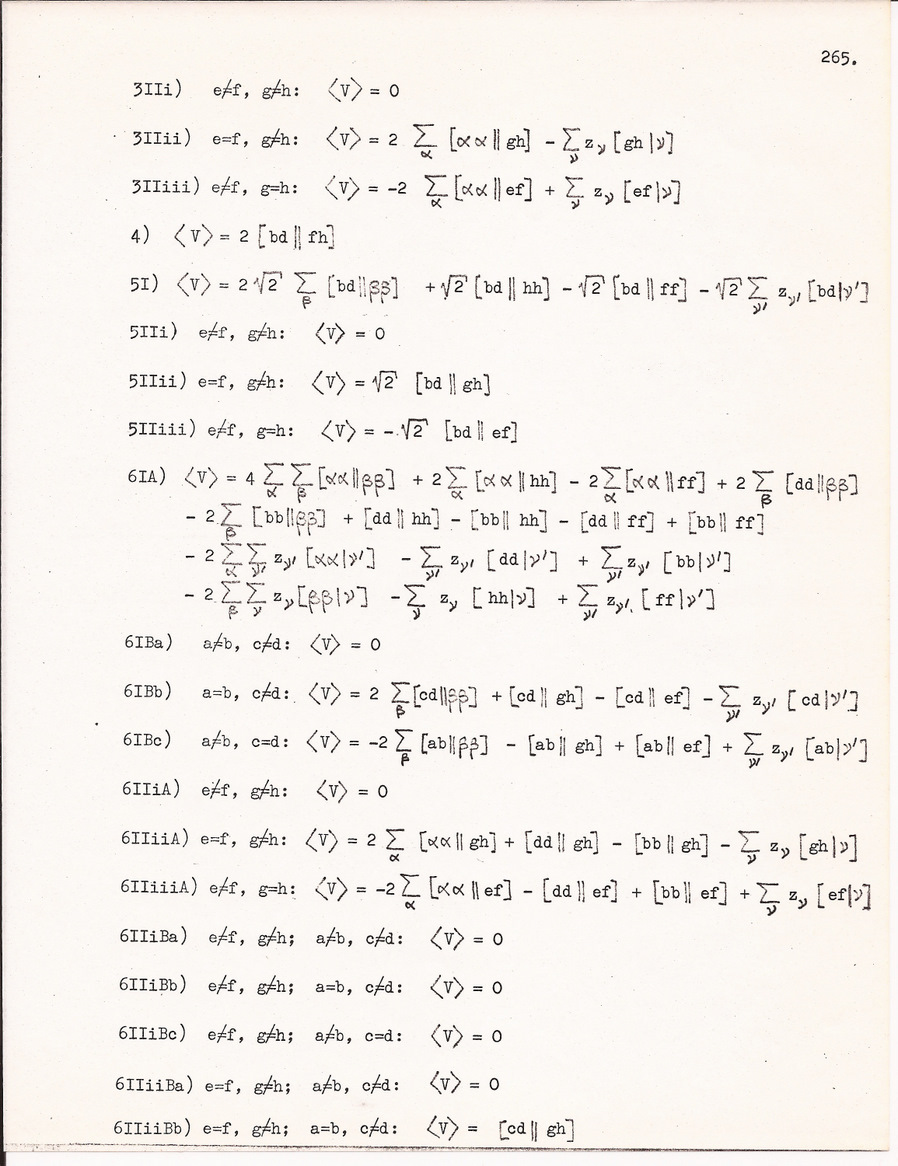 265.
3IIi) e≠f, g≠h: ⟨V⟩ = 0
3IIii) e=f, g≠h: ⟨V⟩ = 2 ∑α [αα‖gh] - ∑ν zν [gh|ν]
3IIiii) e≠f, g=h: ⟨V⟩ = -2 ∑α [αα‖ef] + ∑ν zν [ef|ν]
4) ⟨V⟩ = 2 [bd‖fh]
5I) ⟨V⟩ = 2√2 ∑β [bd‖ββ] + √2 [bd‖hh] - √2 [bd‖ff] - √2 ∑ν′ zν′ [bd|ν′]
5IIi) e≠f, g≠h: ⟨V⟩ = 0
5IIii) e=f, g≠h: ⟨V⟩ = √2 [bd‖gh]
5IIiii) e≠f, g=h: ⟨V⟩ = -√2 [bd‖ef]
6IA) ⟨V⟩ = 4 ∑α ∑β [αα‖ββ] + 2 ∑α [αα‖hh] - 2 ∑α [αα‖ff] + 2 ∑β [dd‖ββ]
- 2 ∑β [bb‖ββ] + [dd‖hh] - [bb‖hh] - [dd‖ff] + [bb‖ff]
- 2 ∑α ∑ν′ zν′ [αα|ν′] - ∑ν′ zν′ [dd|ν′] + ∑ν′ zν′ [bb|ν′]
- 2 ∑β ∑ν zν [ββ|ν] - ∑ν zν [hh|ν] + ∑ν′ zν′ [ff|ν′]
6IBa) a≠b, c≠d: ⟨V⟩ = 0
6IBb) a=b, c≠d: ⟨V⟩ = 2 ∑β [cd‖ββ] + [cd‖gh] - [cd‖ef] - ∑ν′ zν′ [cd|ν′]
6IBc) a≠b, c=d: ⟨V⟩ = -2 ∑β [ab‖ββ] - [ab‖gh] + [ab‖ef] + ∑ν′ zν′ [ab|ν′]
6IIiA) e≠f, g≠h: ⟨V⟩ = 0
6IIiiA) e=f, g≠h: ⟨V⟩ = 2 ∑α [αα‖gh] + [dd‖gh] - [bb‖gh] - ∑ν zν [gh|ν]
6IIiiiA) e≠f, g=h: ⟨V⟩ = -2 ∑α [αα‖ef] - [dd‖ef] + [bb‖ef] + ∑ν zν [ef|ν]
6IIiBa) e≠f, g≠h; a≠b, c≠d: ⟨V⟩ = 0
6IIiBb) e≠f, g≠h; a=b, c≠d: ⟨V⟩ = 0
6IIiBc) e≠f, g≠h; a≠b, c=d: ⟨V⟩ = 0
6IIiiBa) e=f, g≠h; a≠b, c≠d: ⟨V⟩ = 0
6IIiiBb) e=f, g≠h; a=b, c≠d: ⟨V⟩ = [cd‖gh]